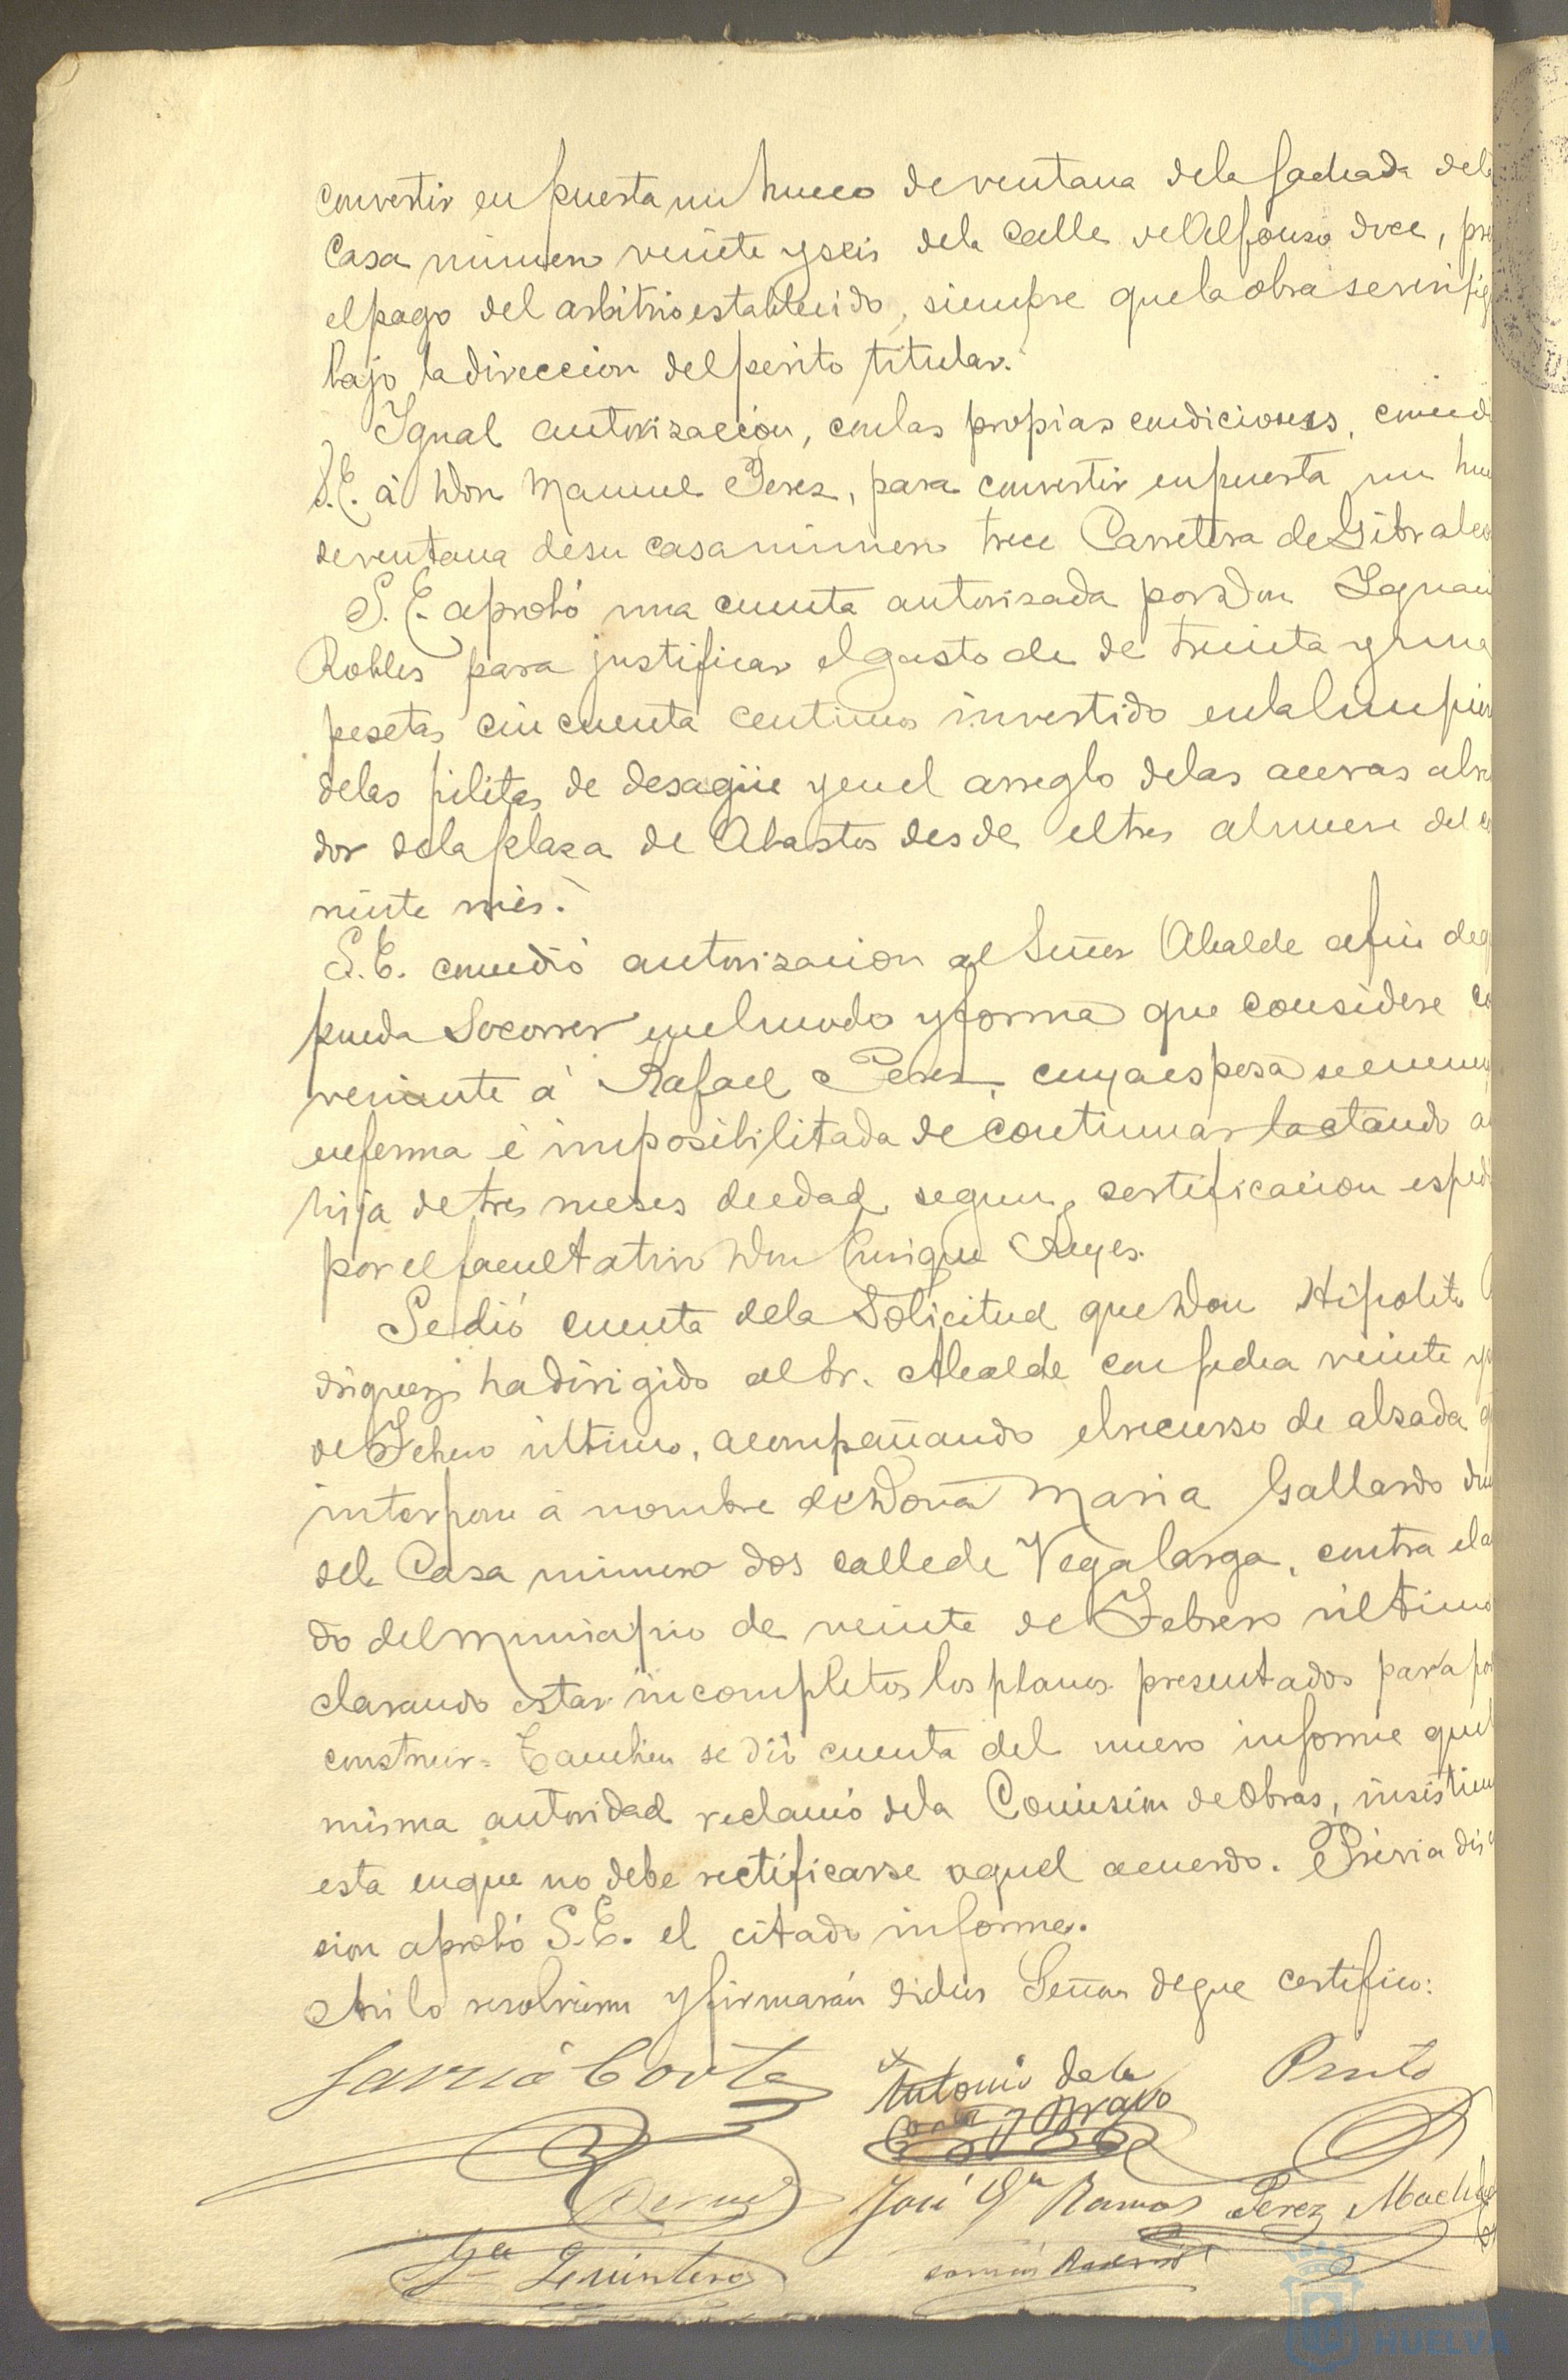 convertir en puerta un hueco de ventana de la fachada dela
Casa número veinte y seis dela Calle de Alfonso doce, pre
el pago del arbitrio establecido, siempre que la obra se verifiq
bajo la direccion del perito titular.
Igual autorización, con las propias condiciones, concedi
S.E. á Don Manuel Perez, para convertir en puerta un hue
de ventana de su casa número trece Carretera de Gibraleo
S. E. aprobó una cuenta autorizada por Don Ignaci
Robles para justificar el gasto de de treinta y una
pesetas cincuenta centimos invertido en la limpie
delas pilitas de desagüe y en el arreglo delas aceras alre
dor dela plaza de Abastos desde el tres al nueve del
niente més.
S.E. concedió autorizacion al Señor Alcalde afin de q
pueda Socorrer en el modo y forma que considere co
veniente á Rafael Perez cuya esposa se encuen
enferma é imposibilitada de continuar lactando a
hija de tres meses de edad, segun certificacion espedi
por el facultativo Don Enrique Reyes.
Se dió cuenta dela Solicitud que Don Hipolito
driguez ha dirigido al Sr. Alcalde con fecha veinte y
de Febrero último, acompañando el recurso de alzada q
interpone á nombre de Doña Maria Gallardo due
dela Casa número dos calle de Vegalarga, contra el a
do del municipio de veinte de Febrero último
clarando estar incompletos los planos presentados para po
construir= Tambien se dió cuenta del nuevo informe que l
misma autoridad reclamó dela Comision de obras, insistien
esta en que no debe rectificarse aquel acuerdo. Prévia dis
sion aprobó S.E. el citado informe.
Asi lo resolvieron y firmarán dichos Señores de que certifico:
Garcia Corte
Antonio de la
Corte y Bravo
Pinto
José Gª Ramos
Perez Machado
Gª Quintero
HUELVA